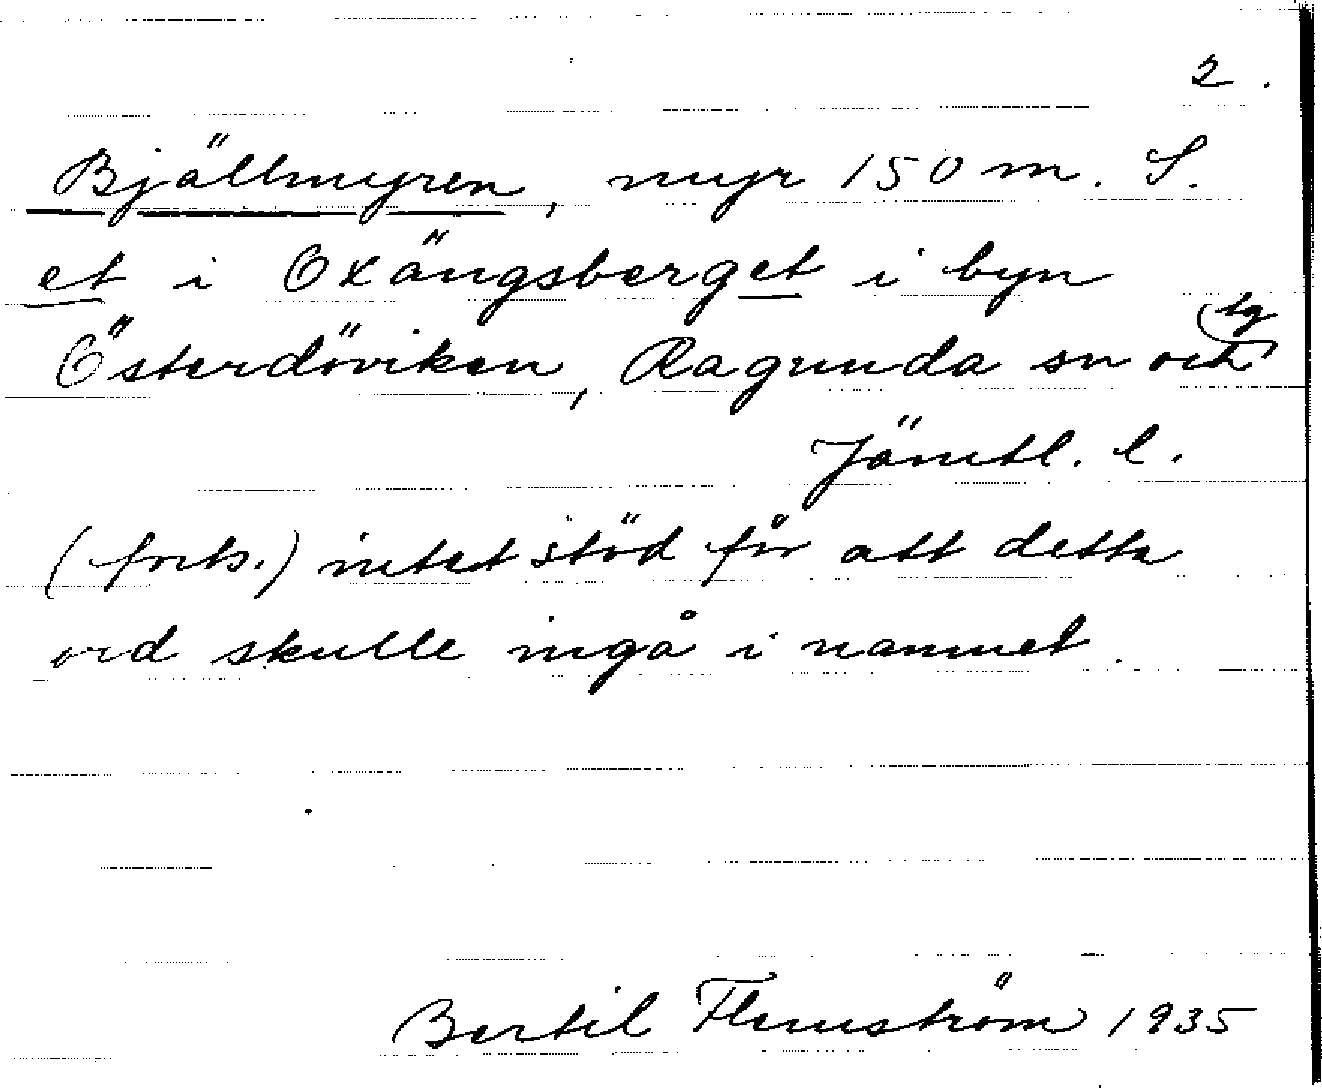 2.
Bjällmyren, myr 150 m. S.
et i Oxängsberget i byn
Österdöviken, Ragunda sn och tg
Jämtl. l.
(forts.) intet stöd för att detta
ord skulle ingå i namnet.
Bertil Flemström 1935